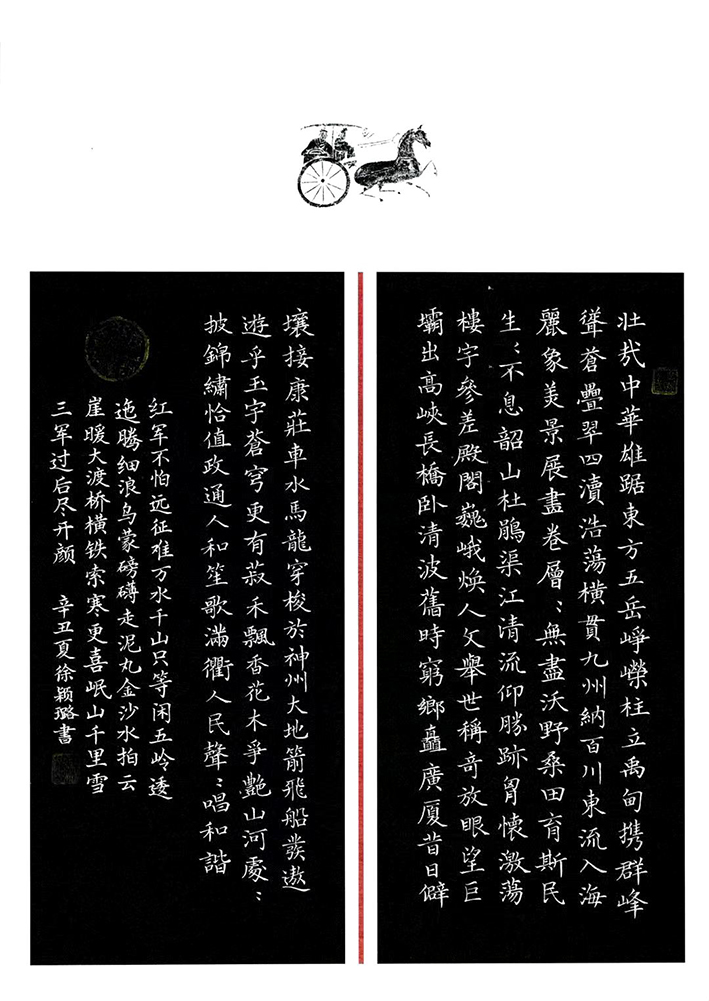 壯哉中華雄踞東方五岳崢嶸柱立禹甸携群峰
聳蒼疊翠四瀆浩蕩橫貫九州納百川東流入海
麗象美景展畫卷層〻無盡沃野桑田育斯民
生〻不息韶山杜鵑渠江清流仰勝跡胷懷激蕩
樓宇參差殿閣巍峨煥人文舉世稱奇放眼望巨
壩出高峽長橋卧清波舊時窮鄉矗廣厦昔日僻
壤接康莊車水馬龍穿梭於神州大地箭飛船發遨
遊乎玉宇蒼穹更有菽禾飄香花木爭艷山河處〻
披錦繡恰值政通人和笙歌滿衢人民聲〻唱和諧
红军不怕远征难万水千山只等闲五岭逶
迤腾细浪乌蒙磅礴走泥丸金沙水拍云
崖暖大渡桥横铁索寒更喜岷山千里雪
三军过后尽开颜 辛丑夏徐颖璐書